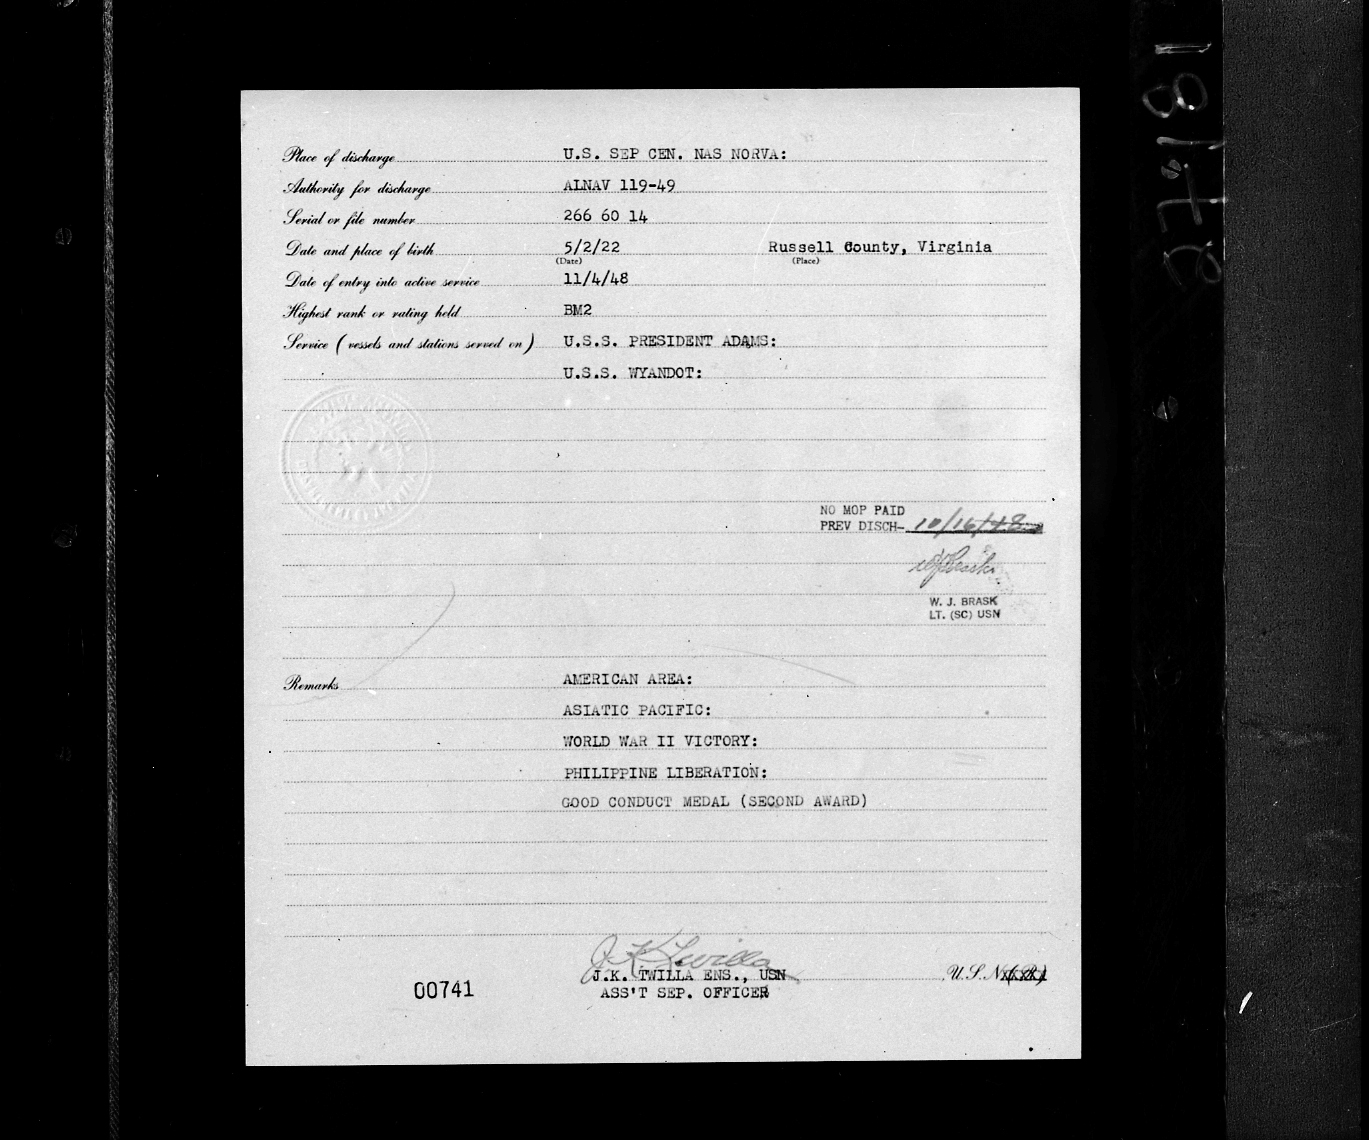 Place of discharge U.S. SEP CEN. NAS NORVA:
Authority for discharge ALNAV 119-49
Serial or file number 266 60 14
Date and place of birth 5/2/22 Russell County, Virginia
(Date) (Place)
Date of entry into active service 11/4/48
Highest rank or rating held BM2
Service (vessels and stations served on) U.S.S. PRESIDENT ADAMS:
U.S.S. WYANDOT:
NO MOP PAID
PREV DISCH- 10/16/48
W J Brask
W. J. BRASK
LT. (SC) USN
Remarks AMERICAN AREA:
ASIATIC PACIFIC:
WORLD WAR II VICTORY:
PHILIPPINE LIBERATION:
GOOD CONDUCT MEDAL (SECOND AWARD)
J. K. Twilla
J.K. TWILLA ENS., USN U.S.N.
ASS'T SEP. OFFICER
00741